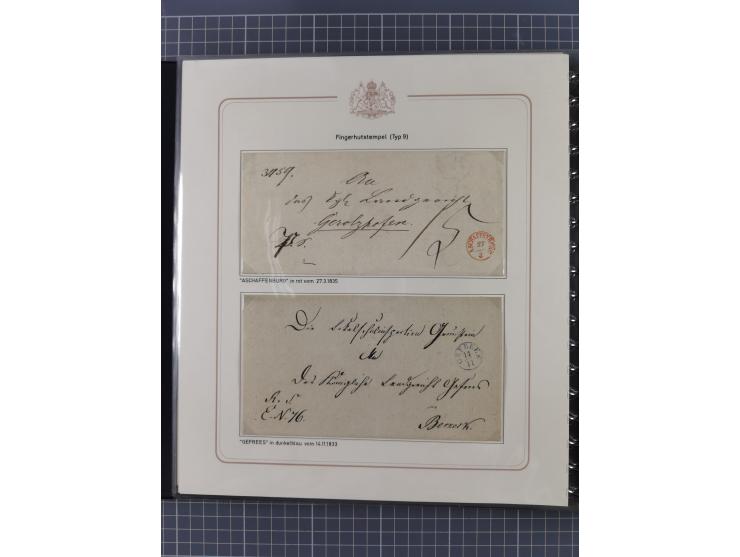 Fingerhutstempel (Typ 9)
An
das Kgl. Landgericht
Gerolzhofen.
ASCHAFFENBURG
27
3
"ASCHAFFENBURG" in rot vom 27.3.1835
Die
An
Das Königliche Landgericht Gefrees
R. S.
E. N. 76.
Berneck.
GEFREES
14
11
"GEFREES" in dunkelblau vom 14.11.1833